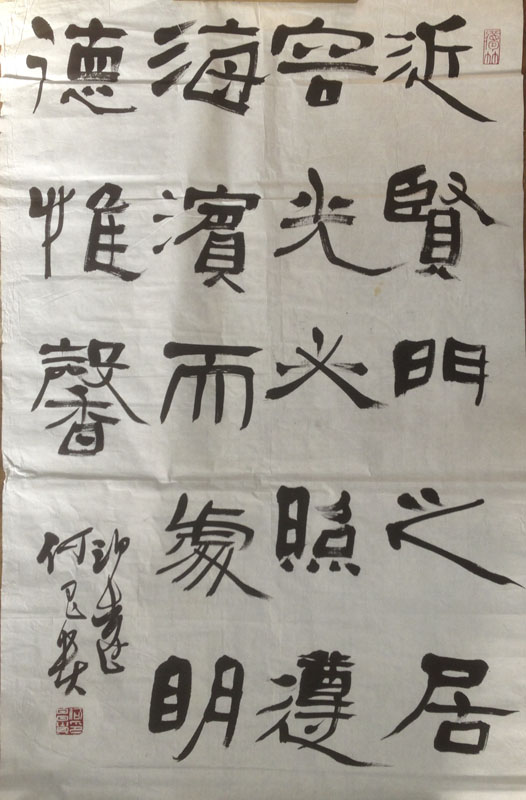 近賢門之居
容光必照遵
海濱而處明
德惟馨
何